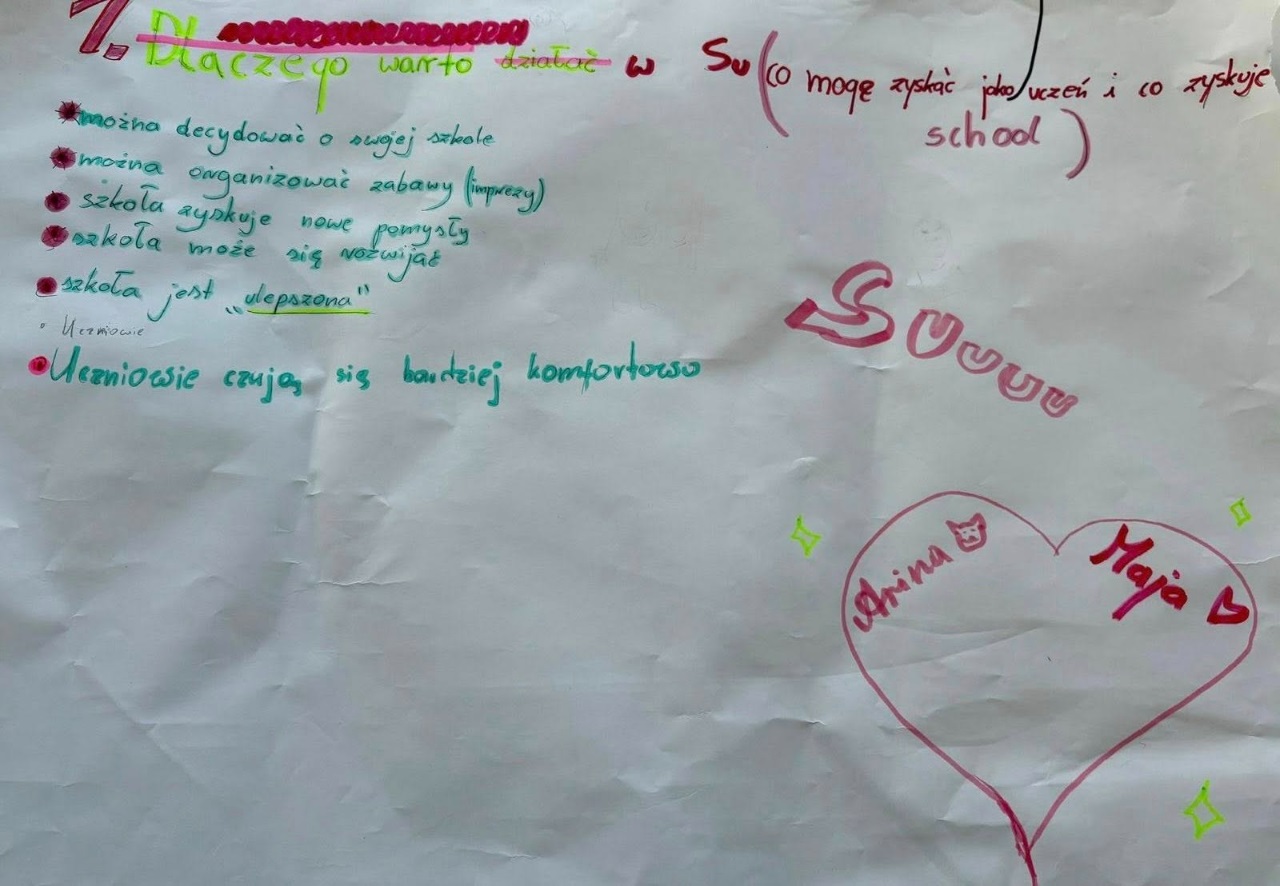 1. Dlaczego warto działać w Su (co mogę zyskać jako uczeń i co zyskuje
school)
można decydować o swojej szkole
można organizować zabawy (imprezy)
szkoła zyskuje nowe pomysły
szkoła może się rozwijać
szkoła jest „ulepszona"
Uczniowie
Uczniowsie czują się bardziej komfortowso
Suuuu
Anina
Maja